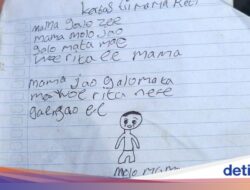 Kertas Tii Mama Reti
mama galo zee
mama molo Jao
galo mata mae
woe rita ee mama
mama jao galo mata
mae woe rita ne'e
gae ngao ee
molo mama
deti